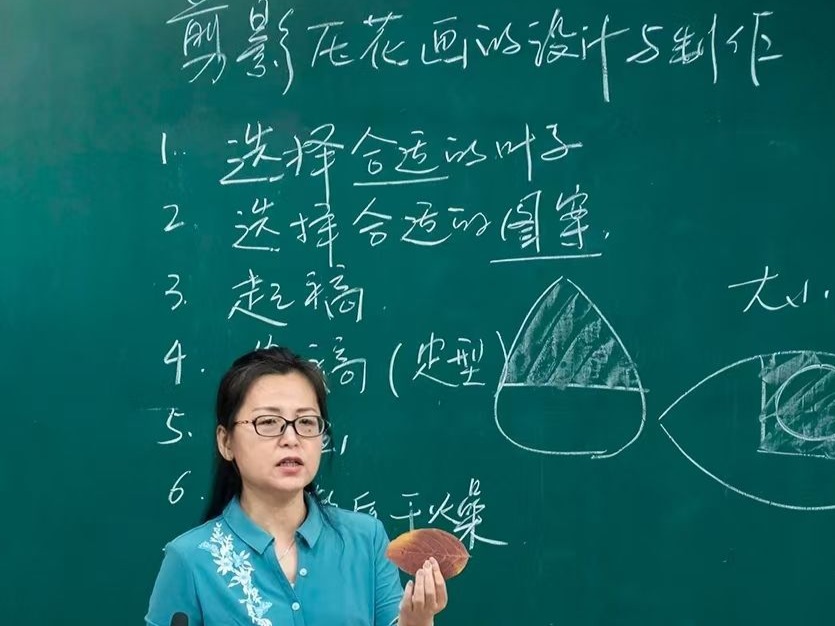 剪影压花画的设计与制作
1. 选择合适的叶子
2. 选择合适的图案.
3. 起稿.
大小.
4. 稿(定型)
5.
6. 后干燥